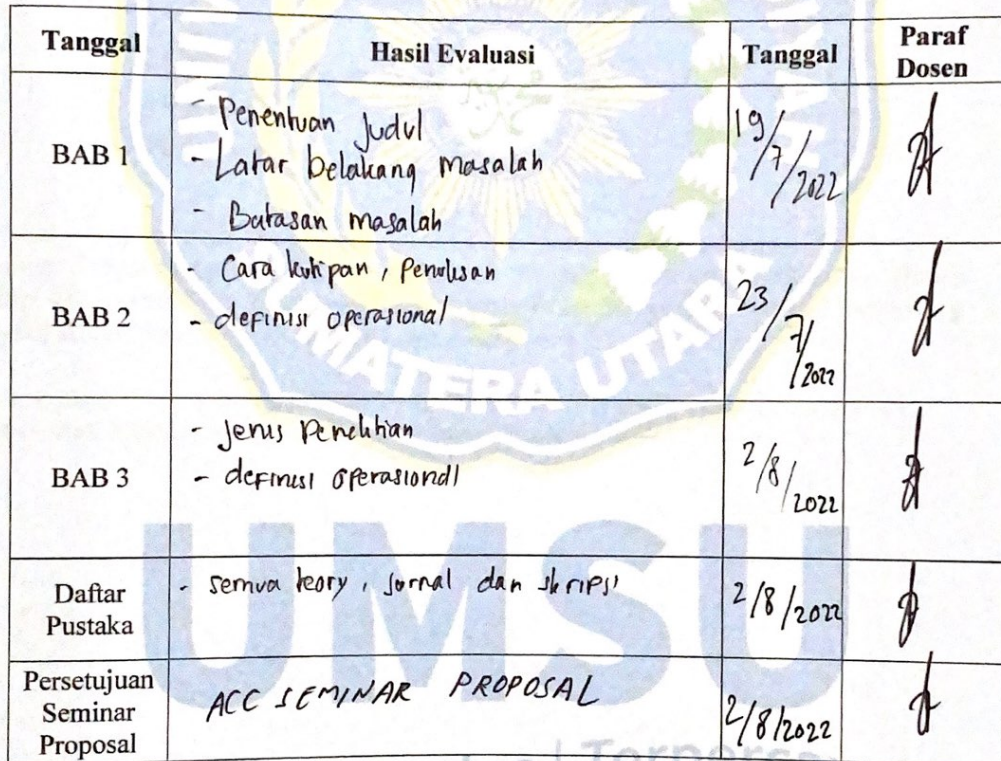 Tanggal Hasil Evaluasi Tanggal Paraf
Dosen
BAB 1
- Penentuan Judul
- Latar belakang masalah
- Batasan masalah
19/7/2022
BAB 2
- Cara kutipan, Penulisan
- definisi operasional
23/7/2022
BAB 3
- Jenis Penelitian
- definisi operasional
2/8/2022
Daftar
Pustaka
- semua teory, jurnal dan skripsi
2/8/2022
Persetujuan
Seminar
Proposal
ACC SEMINAR PROPOSAL
2/8/2022
SUMATERA UTARA
UMSU